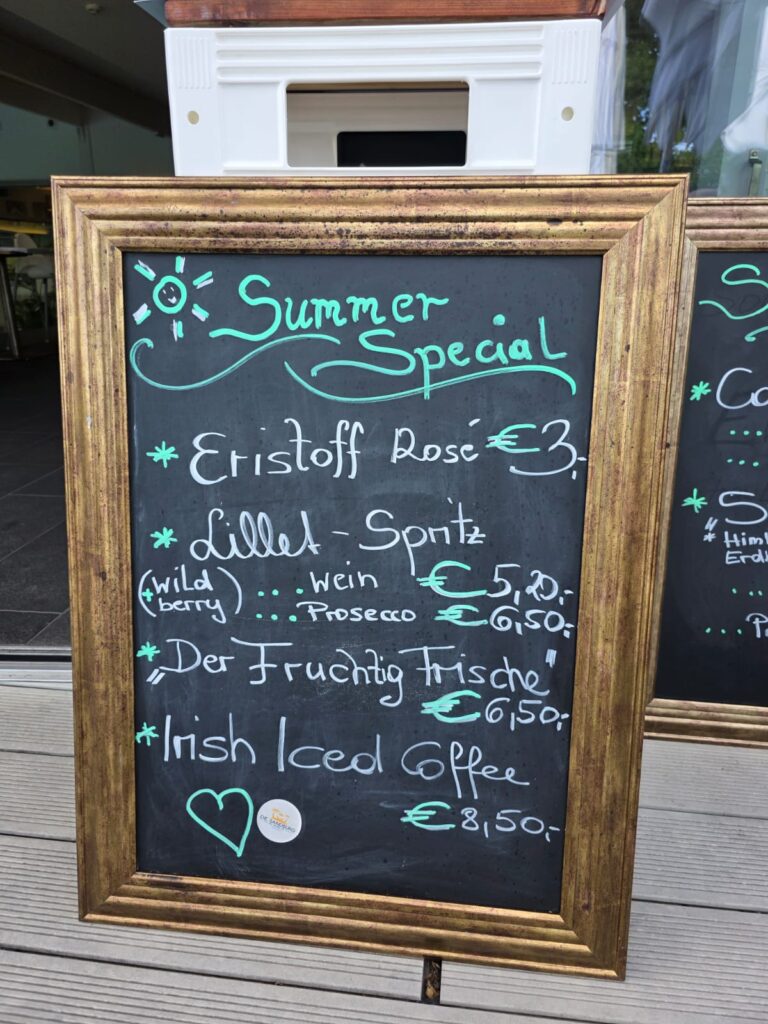 Summer
Special
* Eristoff Rosé €3,-
* Lillet - Spritz
(wild ... Wein €5,20,-
berry) ... Prosecco €6,50,-
* "Der Fruchtig Frische"
€6,50,-
* Irish Iced Coffee
€8,50,-